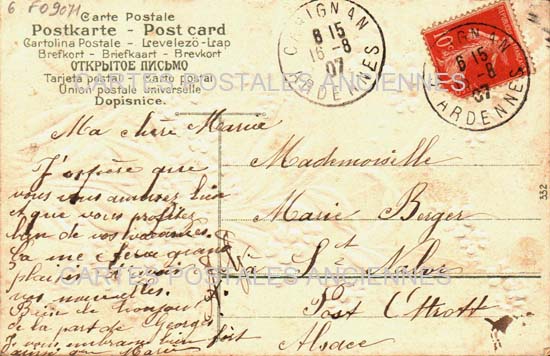 6 F09071
Carte Postale
Postkarte - Post card
Cartolina Postale - Levelező-Lap
Brefkort - Briefkaart - Brevkort
ОТКРЫТОЕ ПИСЬМО
Tarjeta postal - Carto postal
Union postale universelle
Dopisnice.
CARIGNAN
8 15
16 -8
07
ARDENNES
10c
CARIGNAN
8 15
-8
07
ARDENNES
CARTES POSTALES ANCIENNES
Ma chère Marie
J'espère que
vous vous amusez bien
et que vous profitez
bien de vos vacances.
Ça me fera grand
plaisir
vos nouvelles.
Bien le bonjour
de la part de Georges
Je vous embrasse bien fort
Marie
Mademoiselle
Marie Berger
à St Nabor
Post Ottrott
Alsace
332
CARTES POSTALES ANCIENNES